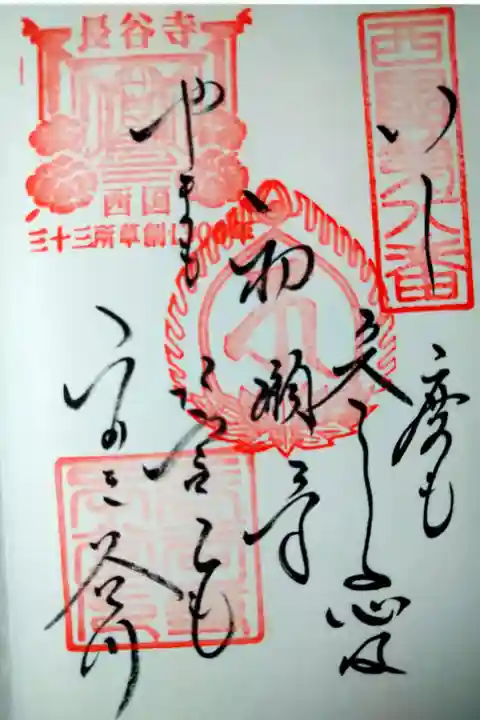 西国第八番
いく度も
参る心は
初瀬寺
やまも誓ひも
ふかき谷川
長谷寺
西国
三十三所草創1300年